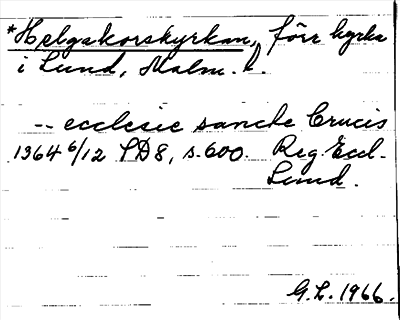 *Helgakorskyrkan, förr kyrka
i Lund, Malm. l.
-- ecclesie sancte Crucis
1364 6/12 SD 8, s. 600. Reg. Eccl.
Lund.
G.L. 1966.